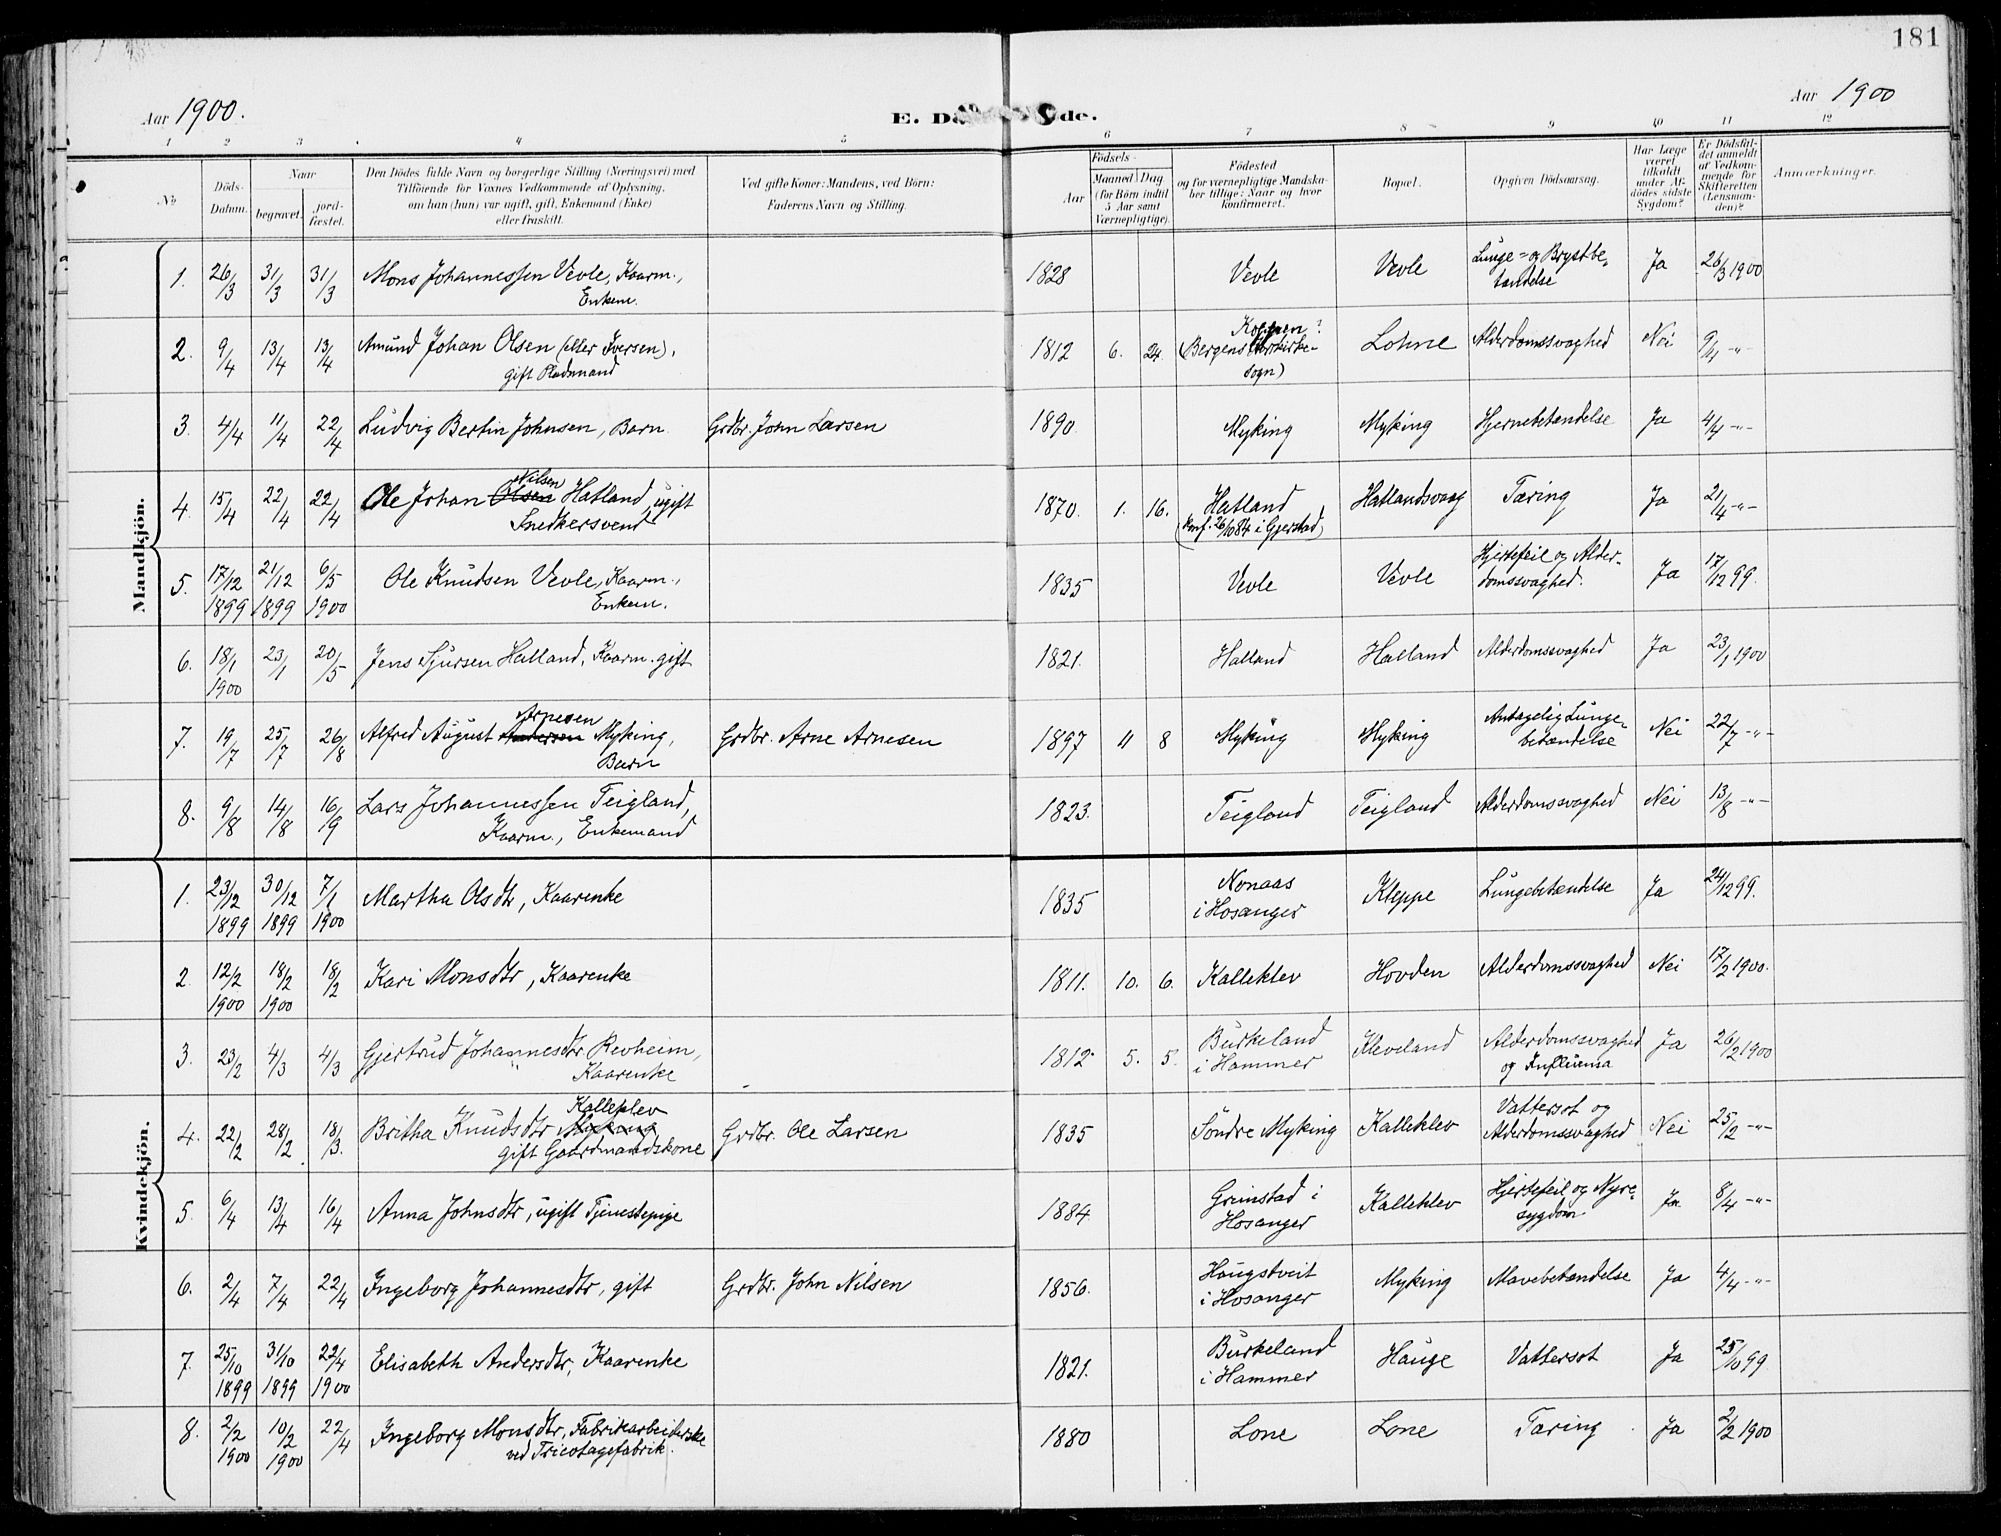 181
Aar 1900.
E. Dö de.
Aar 1900
1 2 3 4 5 6 7 8 9 10 11 12
No
Döds-Datum.
Naar
begravet.
jord-fæstet.
Den Dödes fulde Navn og borgerlige Stilling (Næringsvei) med
Tilföiende for Voxnes Vedkommende af Oplysning,
om han (hun) var ugift, gift, Enkemand (Enke)
eller fraskilt.
Ved gifte Koner: Mandens, ved Börn:
Faderens Navn og Stilling.
Födsels-
Aar
Maaned Dag
(for Börn indtil
5 Aar samt
Værnepligtige).
Födested
og for værnepligtige Mandska-
ber tillige: Naar og hvor
konfirmeret.
Bopæl.
Opgiven Dödsaarsag.
Har Læge
været
tilkaldt
under Af-
dödes sidste
Sygdom?
Er Dödsfal-
det anmeldt
af Vedkom-
mende for
Skifteretten
(Lensman-
den)?
Anmærkninger.
Mandkjön.
1. 26/3 31/3 31/3 Mons Johannessen Vevle, Kaarm., 1828 Vevle Vevle Lunge- og Brystbe- Ja 26/3 1900
Enkem. tændelse
2. 9/4 13/4 13/4 Amund Johan Olsen (eller Iversen), 1812 6. 24. Bergens Lohne Alderdomssvaghed Nei
gift Pladsmand sogn)
3. 4/4 11/4 22/4 Ludvig Bertin Johnsen, Barn Grdbr. John Larsen 1890 Myking Myking Hjernebetændelse Ja 4/4 -"-
Nilsen
4. 15/4 22/4 22/4 Ole Johan Olsen Hatland, ugift 1870. 1. 16. Hatland Hatlandsvaag Tæring Ja 21/4 -"-
Snedkersvend (konf. 26/10 84 i Gjerstad)
5. 17/12 21/12 6/5 Ole Knudsen Vevle, Kaarm., 1835 Vevle Vevle Hjertefeil og Alder- Ja 17/12 99.
1899 1899 1900 Enkem. domssvaghed.
6. 18/1 23/1 20/5 Jens Sjursen Halland, Kaarm. gift 1821. Halland Halland Alderdomssvaghed Ja 23/1 1900
1900
Arnesen
7. 19/7 25/7 26/8 Alfred August Andersen Myking, Grdbr. Arne Arnesen 1897 11 8 Myking Myking Antagelig Lunge- Nei 22/7 -"-
Barn betændelse
8. 9/8 14/8 16/9 Lars Johannessen Teigland, 1823. Teigland Teigland Alderdomssvaghed Nei 13/8 -"-
Kaarm., Enkemand
Kvindekjön.
1. 23/12 30/12 7/1 Martha Olsdtr, Kaarenke 1835 Nonaas Kleppe Lungebetændelse Ja 24/12 99.
1899 1899 1900 i Hosanger
2. 12/2 18/2 18/2 Kari Monsdtr, Kaarenke 1811. 10. 6. Kalleklev Hovden Alderdomssvaghed Nei 17/2 1900.
1900 1900
3. 23/2 4/3 4/3 Gjertrud Johannesdtr. Revheim, 1812 5. 5. Burkeland Kleveland Alderdomssvaghed Ja 26/2 1900
Kaarenke i Hammer og Influensa
Kalleklev
4. 22/2 28/2 18/3. Britha Knudsdtr Myking Grdbr. Ole Larsen 1835 Söndre Myking Kalleklev Vattersot og Nei 25/2 -"-
gift Gaardmandskone Alderdomssvaghed
5. 6/4 13/4 16/4 Anna Johnsdtr, ugift Tjenestepige 1884. Grimstad i Kalleklev Hjertefeil og Nyre- Ja 8/4 -"-
Hosanger sygdom
6. 2/4 7/4 22/4 Ingeborg Johannesdtr, gift Grdbr. John Nilsen 1856. Haugstveit Myking Mavebetændelse Ja 4/4 -"-
i Hosanger
7. 25/10 31/10 22/4 Elisabeth Andersdtr, Kaarenke 1821. Burkeland Hauge Vattersot Ja 25/10 99
1899 1899 1900 i Hammer
8. 2/2 10/2 22/4 Ingeborg Monsdtr, Fabrikarbeiderske 1880 Lone Lone Tæring Ja 2/2 1900
1900 1900 ved Tricotagefabrik.